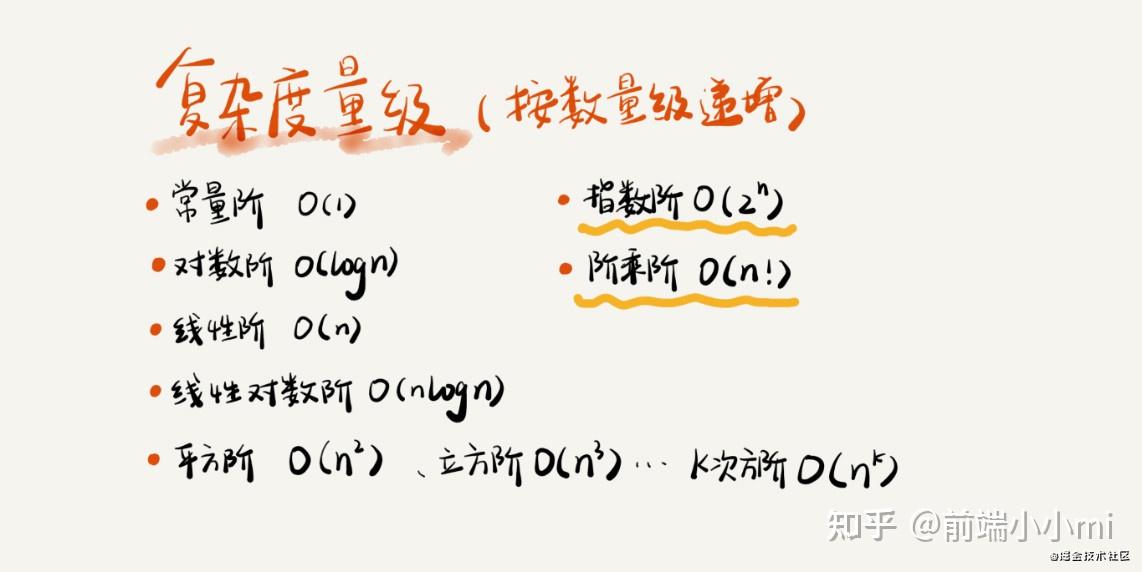 复杂度量级（按数量级递增）
• 常量阶 O(1)
• 对数阶 O(logn)
• 线性阶 O(n)
• 线性对数阶 O(nlogn)
• 平方阶 O(n²)、立方阶 O(n³)… K次方阶 O(nᵏ)
• 指数阶 O(2ⁿ)
• 阶乘阶 O(n!)
知乎 @前端小小mi
@掘金技术社区